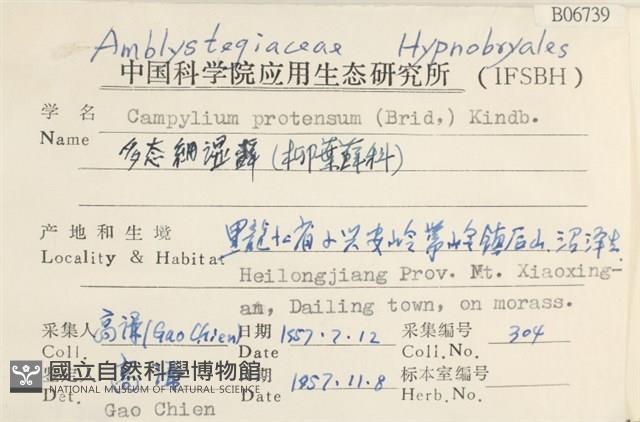 B06739
Amblystegiaceae Hypnobryales
中国科学院应用生态研究所 (IFSBH)
学名 Campylium protensum (Brid,) Kindb.
Name 多态细湿藓 (柳叶藓科)
产地和生境 黑龍江省小兴安岭带岭镇后山.沼泽
Locality & Habitat Heilongjiang Prov. Mt. Xiaoxing-
an, Dailing town, on morass.
采集人 高谦(Gao Chien) 日期 1957.7.12 采集编号 304
Coll. Date Coll.No.
國立自然科學博物館 高谦 日期 1957.11.8 标本室编号
NATIONAL MUSEUM OF NATURAL SCIENCE
Det. Gao Chien Date Herb.No.